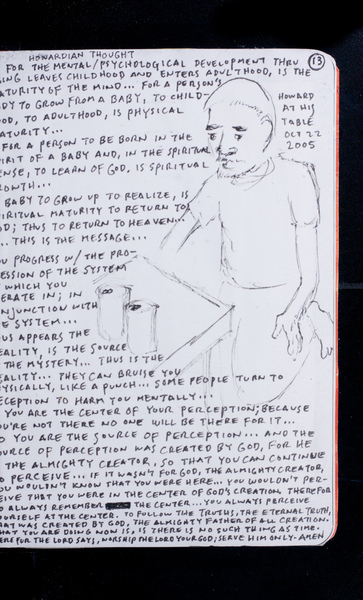 HOWARDIAN THOUGHT
FOR THE MENTAL/PSYCHOLOGICAL DEVELOPMENT THRU (13)
ING LEAVES CHILDHOOD AND ENTERS ADULTHOOD, IS THE
ATURITY OF THE MIND... FOR A PERSON'S
ODY TO GROW FROM A BABY, TO CHILD-
OOD, TO ADULTHOOD, IS PHYSICAL
ATURITY...
FOR A PERSON TO BE BORN IN THE
PIRIT OF A BABY AND, IN THE SPIRITUAL
ENSE, TO LEARN OF GOD, IS SPIRITUAL
ROWTH...
BABY TO GROW UP TO REALIZE, IS
PIRITUAL MATURITY TO RETURN TO
OD; THUS TO RETURN TO HEAVEN...
... THIS IS THE MESSAGE...
HOWARD
AT HIS
TABLE
OCT 22
2005
OU PROGRESS W/ THE PRO-
ESSION OF THE SYSTEM
WHICH YOU
ERATE IN; IN
ONJUNCTION WITH
E SYSTEM...
US APPEARS THE
EALITY, IS THE SOURCE
THE MYSTERY... THUS IS THE
EALITY... THEY CAN BRUISE YOU
YSICALLY, LIKE A PUNCH... SOME PEOPLE TURN TO
ECEPTION TO HARM YOU MENTALLY...
YOU ARE THE CENTER OF YOUR PERCEPTION; BECAUSE
OU'RE NOT THERE NO ONE WILL BE THERE FOR IT...
O YOU ARE THE SOURCE OF PERCEPTION... AND THE
OURCE OF PERCEPTION WAS CREATED BY GOD, FOR HE
THE ALMIGHTY CREATOR, SO THAT YOU CAN CONTINUE
O PERCEIVE... IF IT WASN'T FOR GOD, THE ALMIGHTY CREATOR,
OU WOULDN'T KNOW THAT YOU WERE HERE... YOU WOULDN'T PER-
EIVE THAT YOU WERE IN THE CENTER OF GOD'S CREATION. THEREFOR
O ALWAYS REMEMBER THE CENTER... YOU ALWAYS PERCEIVE
OURSELF AT THE CENTER. TO FOLLOW THE TRUTHS, THE ETERNAL TRUTH,
HAT WAS CREATED BY GOD, THE ALMIGHTY FATHER OF ALL CREATION.
HAT YOU ARE DOING NOW IS, IS THERE IS NO SUCH THING AS TIME.
ERE FOR THE LORD SAYS, WORSHIP THE LORD YOUR GOD; SERVE HIM ONLY. AMEN